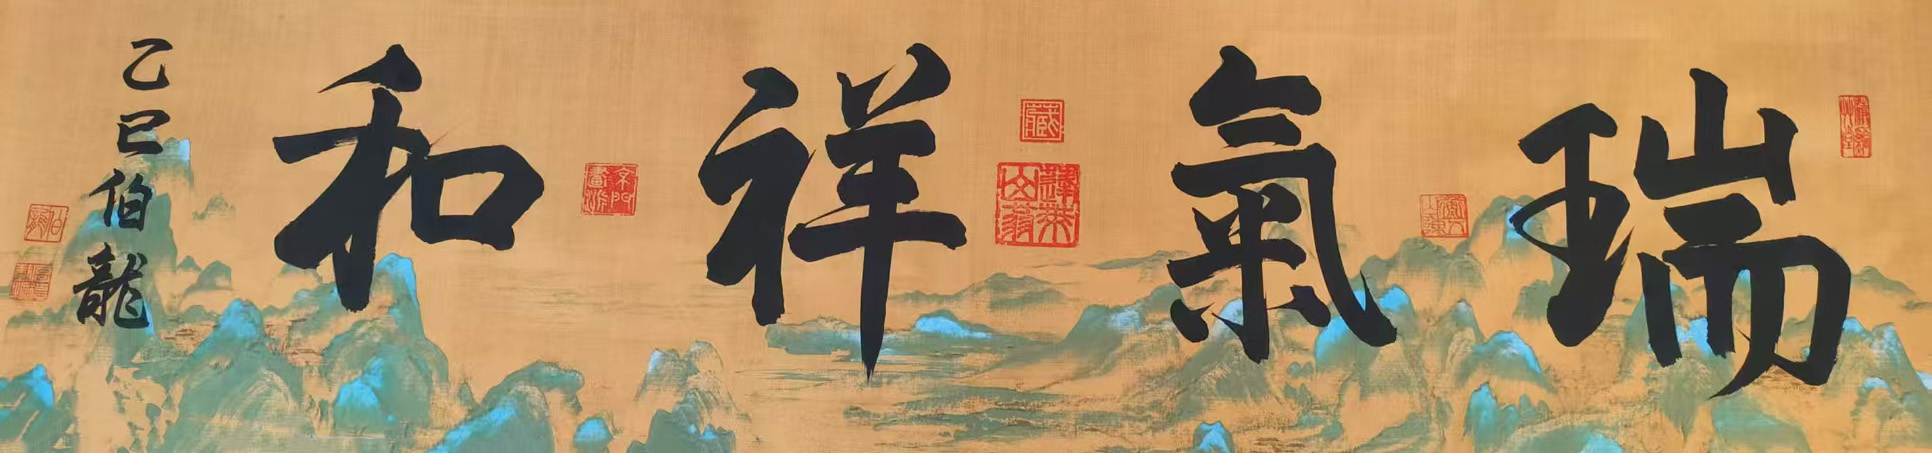 瑞氣祥和
乙巳伯龍
藏